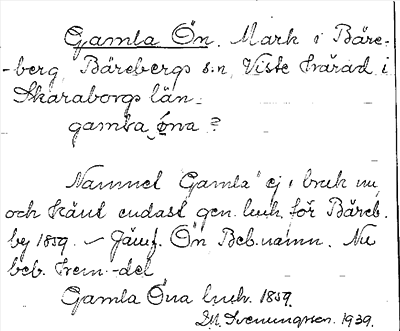 Gamla Ön. Mark i Bäre-
-berg, Bärebergs s:n, Viste härad i
Skaraborgs län.
gamla öna ?
Namnet "Gamla" ej i bruk nu
och känt endast gen. luh. för Bäreb.
by 1859. – Jämf. Ön Beb.namn. Nu
beb. hem.-del,
Gamla Öna luh. 1859.
Svenungsson. 1939.